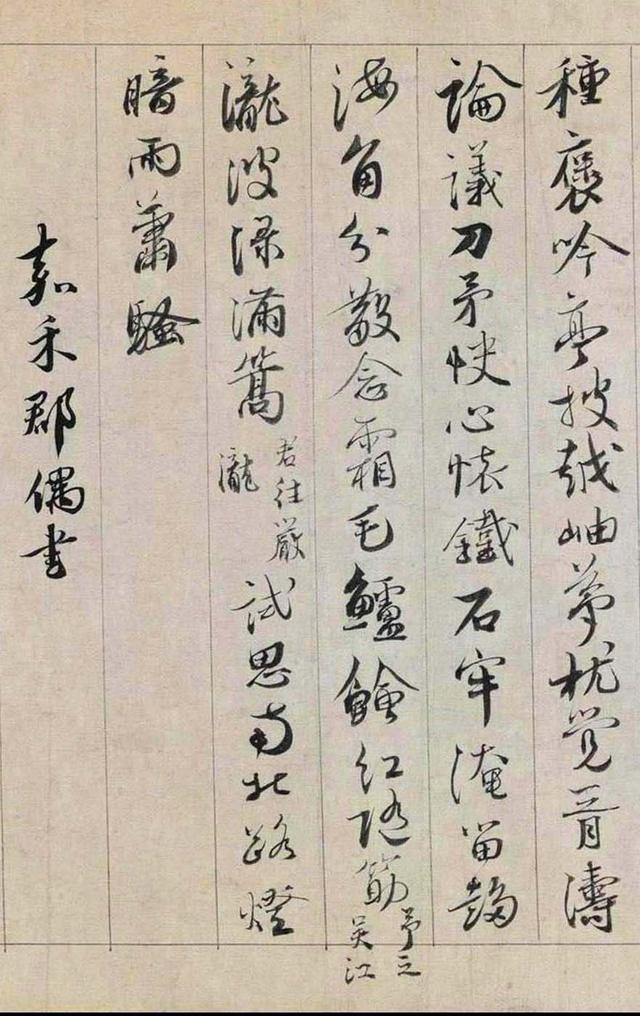 種褒吟亭披越岫夢枕覺胥濤
論議刀矛快心懷鐵石牢淹留趨
海角分散念霜毛鱸鱠紅随筯予之吴江
瀧波渌滿篙君往嚴瀧試思南北路燈
暗雨蕭騷
嘉禾郡偶書